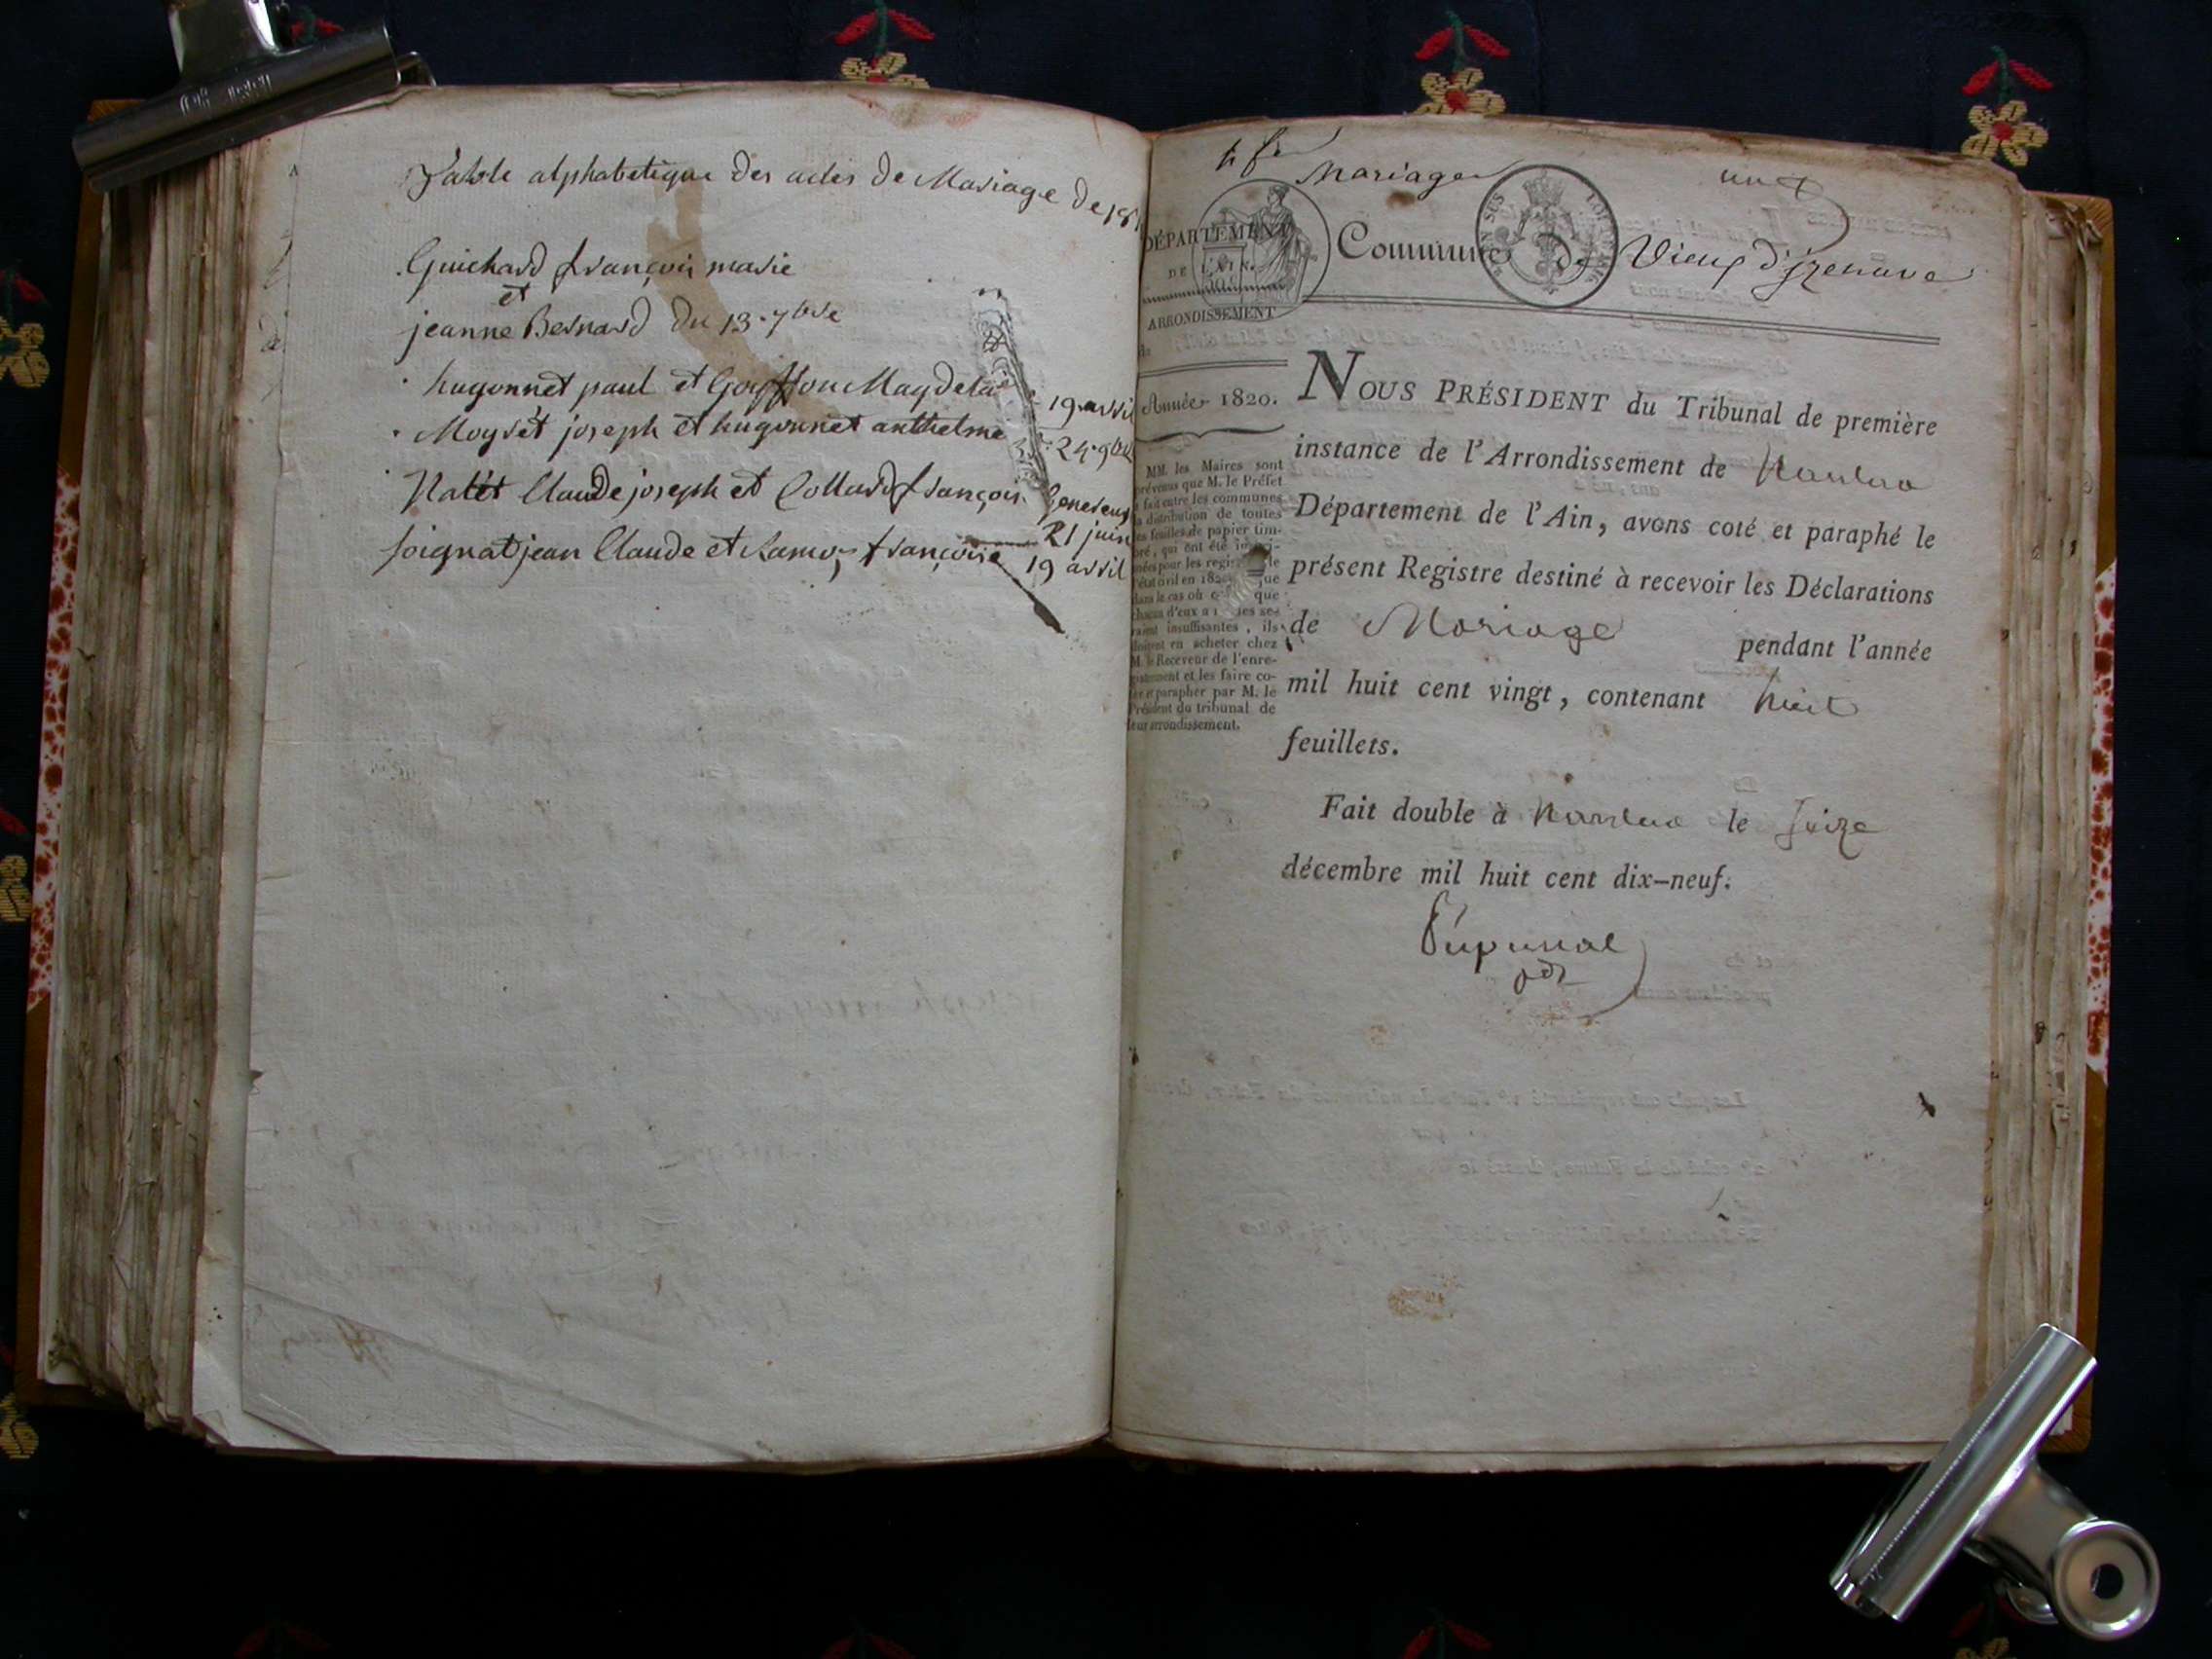 Table alphabetique des actes de Mariage de
Guichard françois marie
et
jeanne Bernard du 13 7bre
hugonnet paul et Goyffon Magdelai 19 avril
Moyret joseph et hugonnet anthelme 24 9bre
Natet Claude joseph et Collard françoise Geneseuy
21 juin
soignat jean Claude et Ramoz françoise 19 avril
Mariage un
DÉPARTEMENT
DE L'AIN.
ARRONDISSEMENT
de
Commune de Vieux d'izenave
Année 1820.
MM. les Maires sont
prévenus que M. le Préfet
a fait entre les communes
la distribution de toutes
les feuilles de papier tim-
bré, qui ont été
pour les le
en que
dans le cas où que
chacun d'eux a les se-
raient insuffisantes, ils
doivent en acheter chez
M. le Receveur de l'enre-
gistrement et les faire co-
ter et parapher par M. le
Président du tribunal de
leur arrondissement.
NOUS PRÉSIDENT du Tribunal de première
instance de l'Arrondissement de Nantua
Département de l'Ain, avons coté et paraphé le
présent Registre destiné à recevoir les Déclarations
de Mariage pendant l'année
mil huit cent vingt, contenant huit
feuillets.
Fait double à Nantua le seize
décembre mil huit cent dix-neuf.